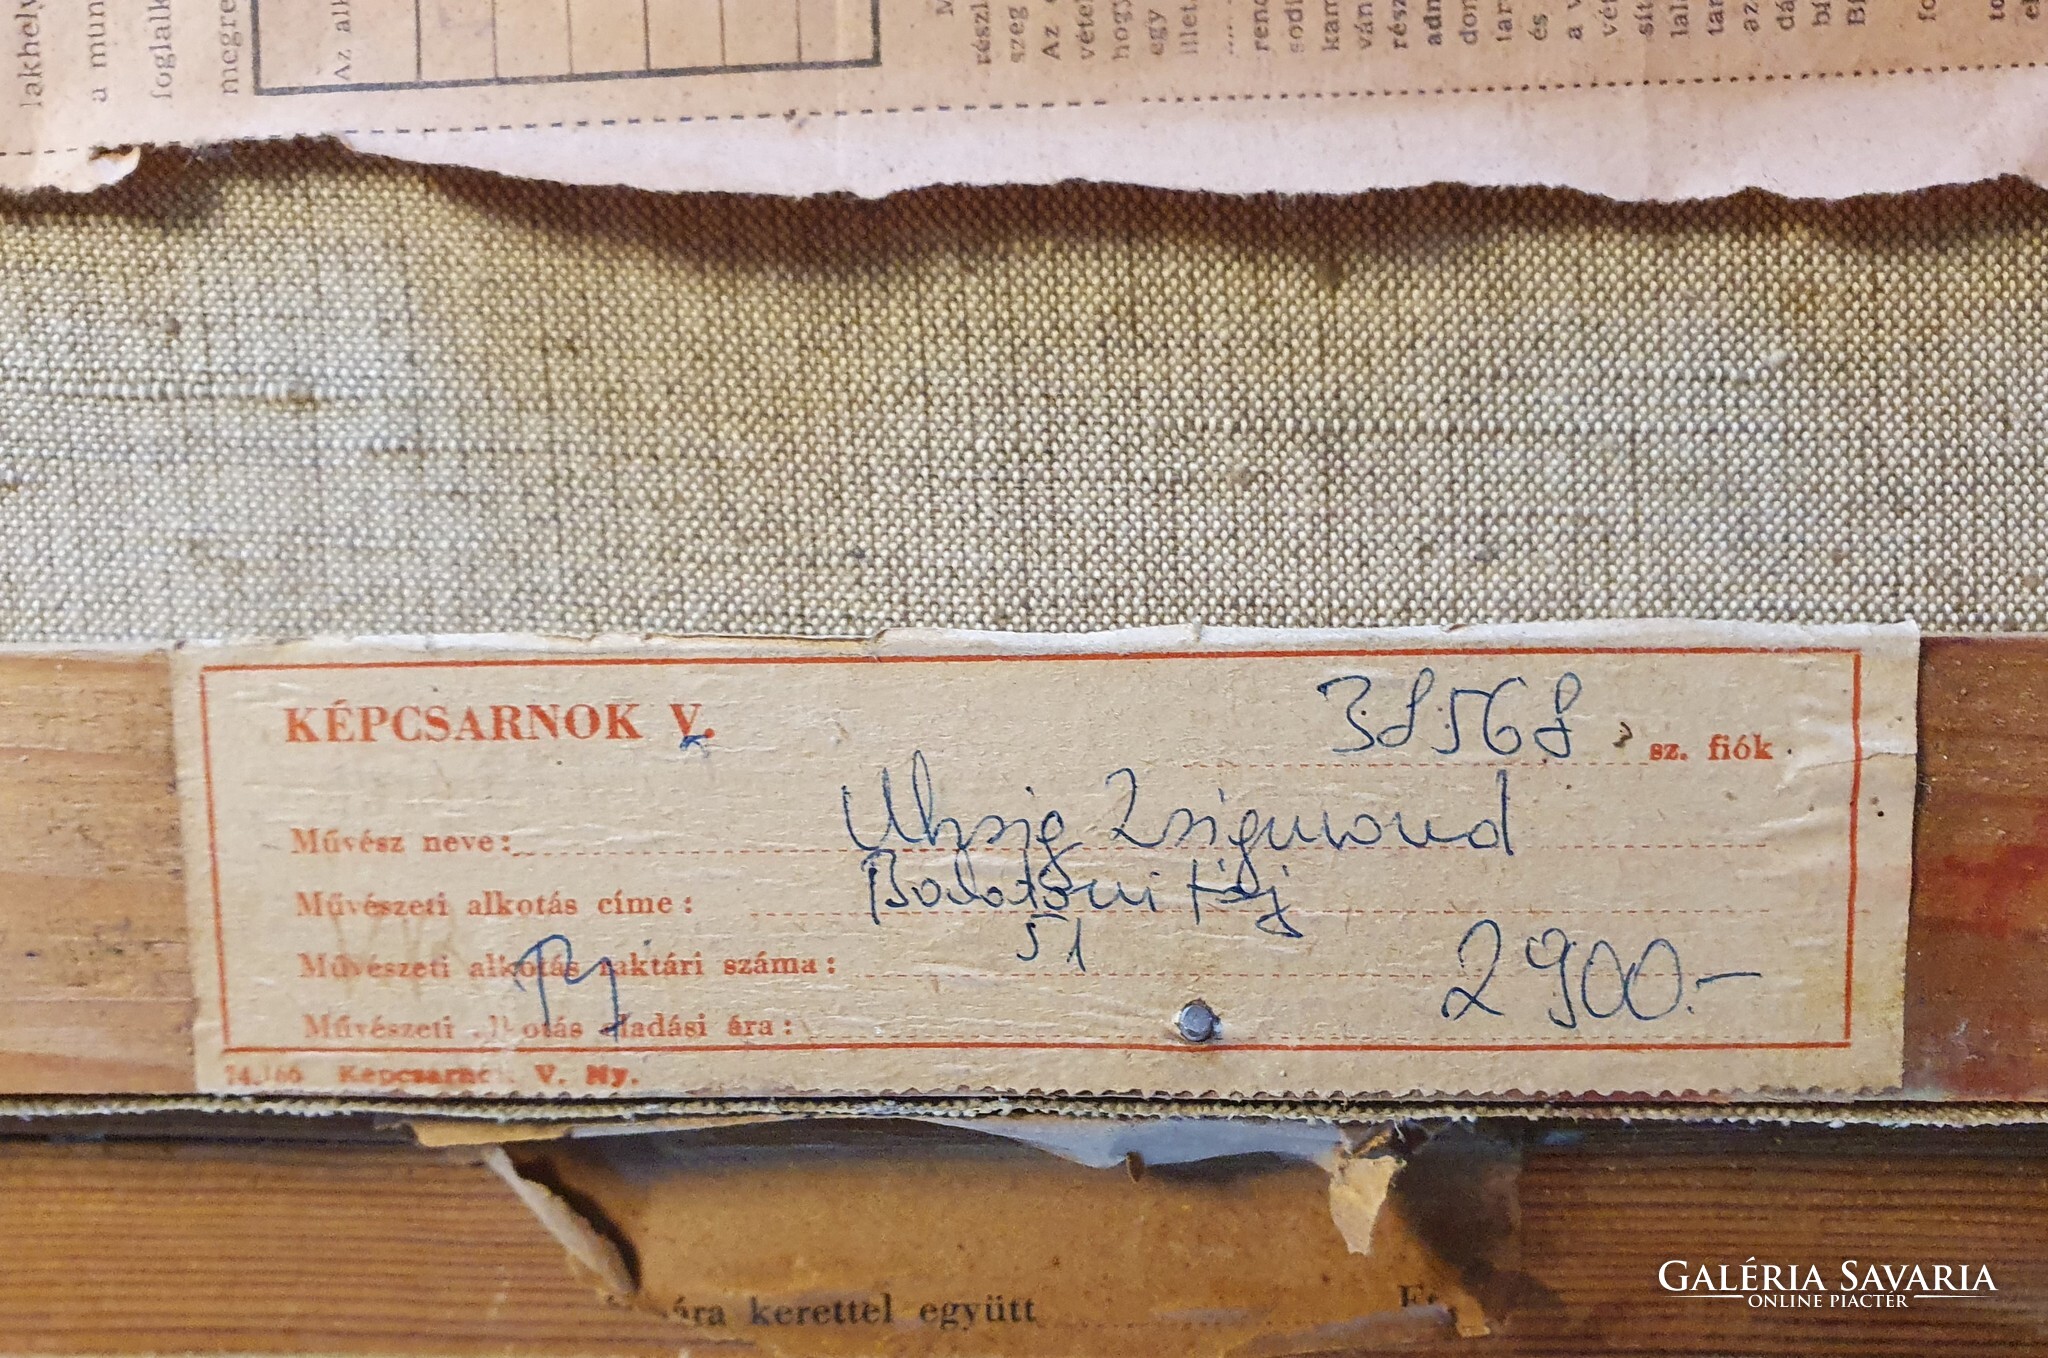 lakhely
a mun
foglalk
megre
Az alk
M
részl
szeg
Az
vétel
hogy
egy
illet
rend
sodi
kam
ván
rész
adn
don
tar
és
a v
vé
sít
lal
tar
az
dá
bí
Bí
fo
to
el
KÉPCSARNOK V.
38568 sz. fiók
Művész neve: Uhsig Zsigmond
Művészeti alkotás címe: Balatoni táj
Művészeti alkotás raktári száma: 51
Művészeti alkotás eladási ára: 2900.-
74.166 Képcsarnok V. Ny.
ára kerettel együtt
GALÉRIA SAVARIA
ONLINE PIACTÉR